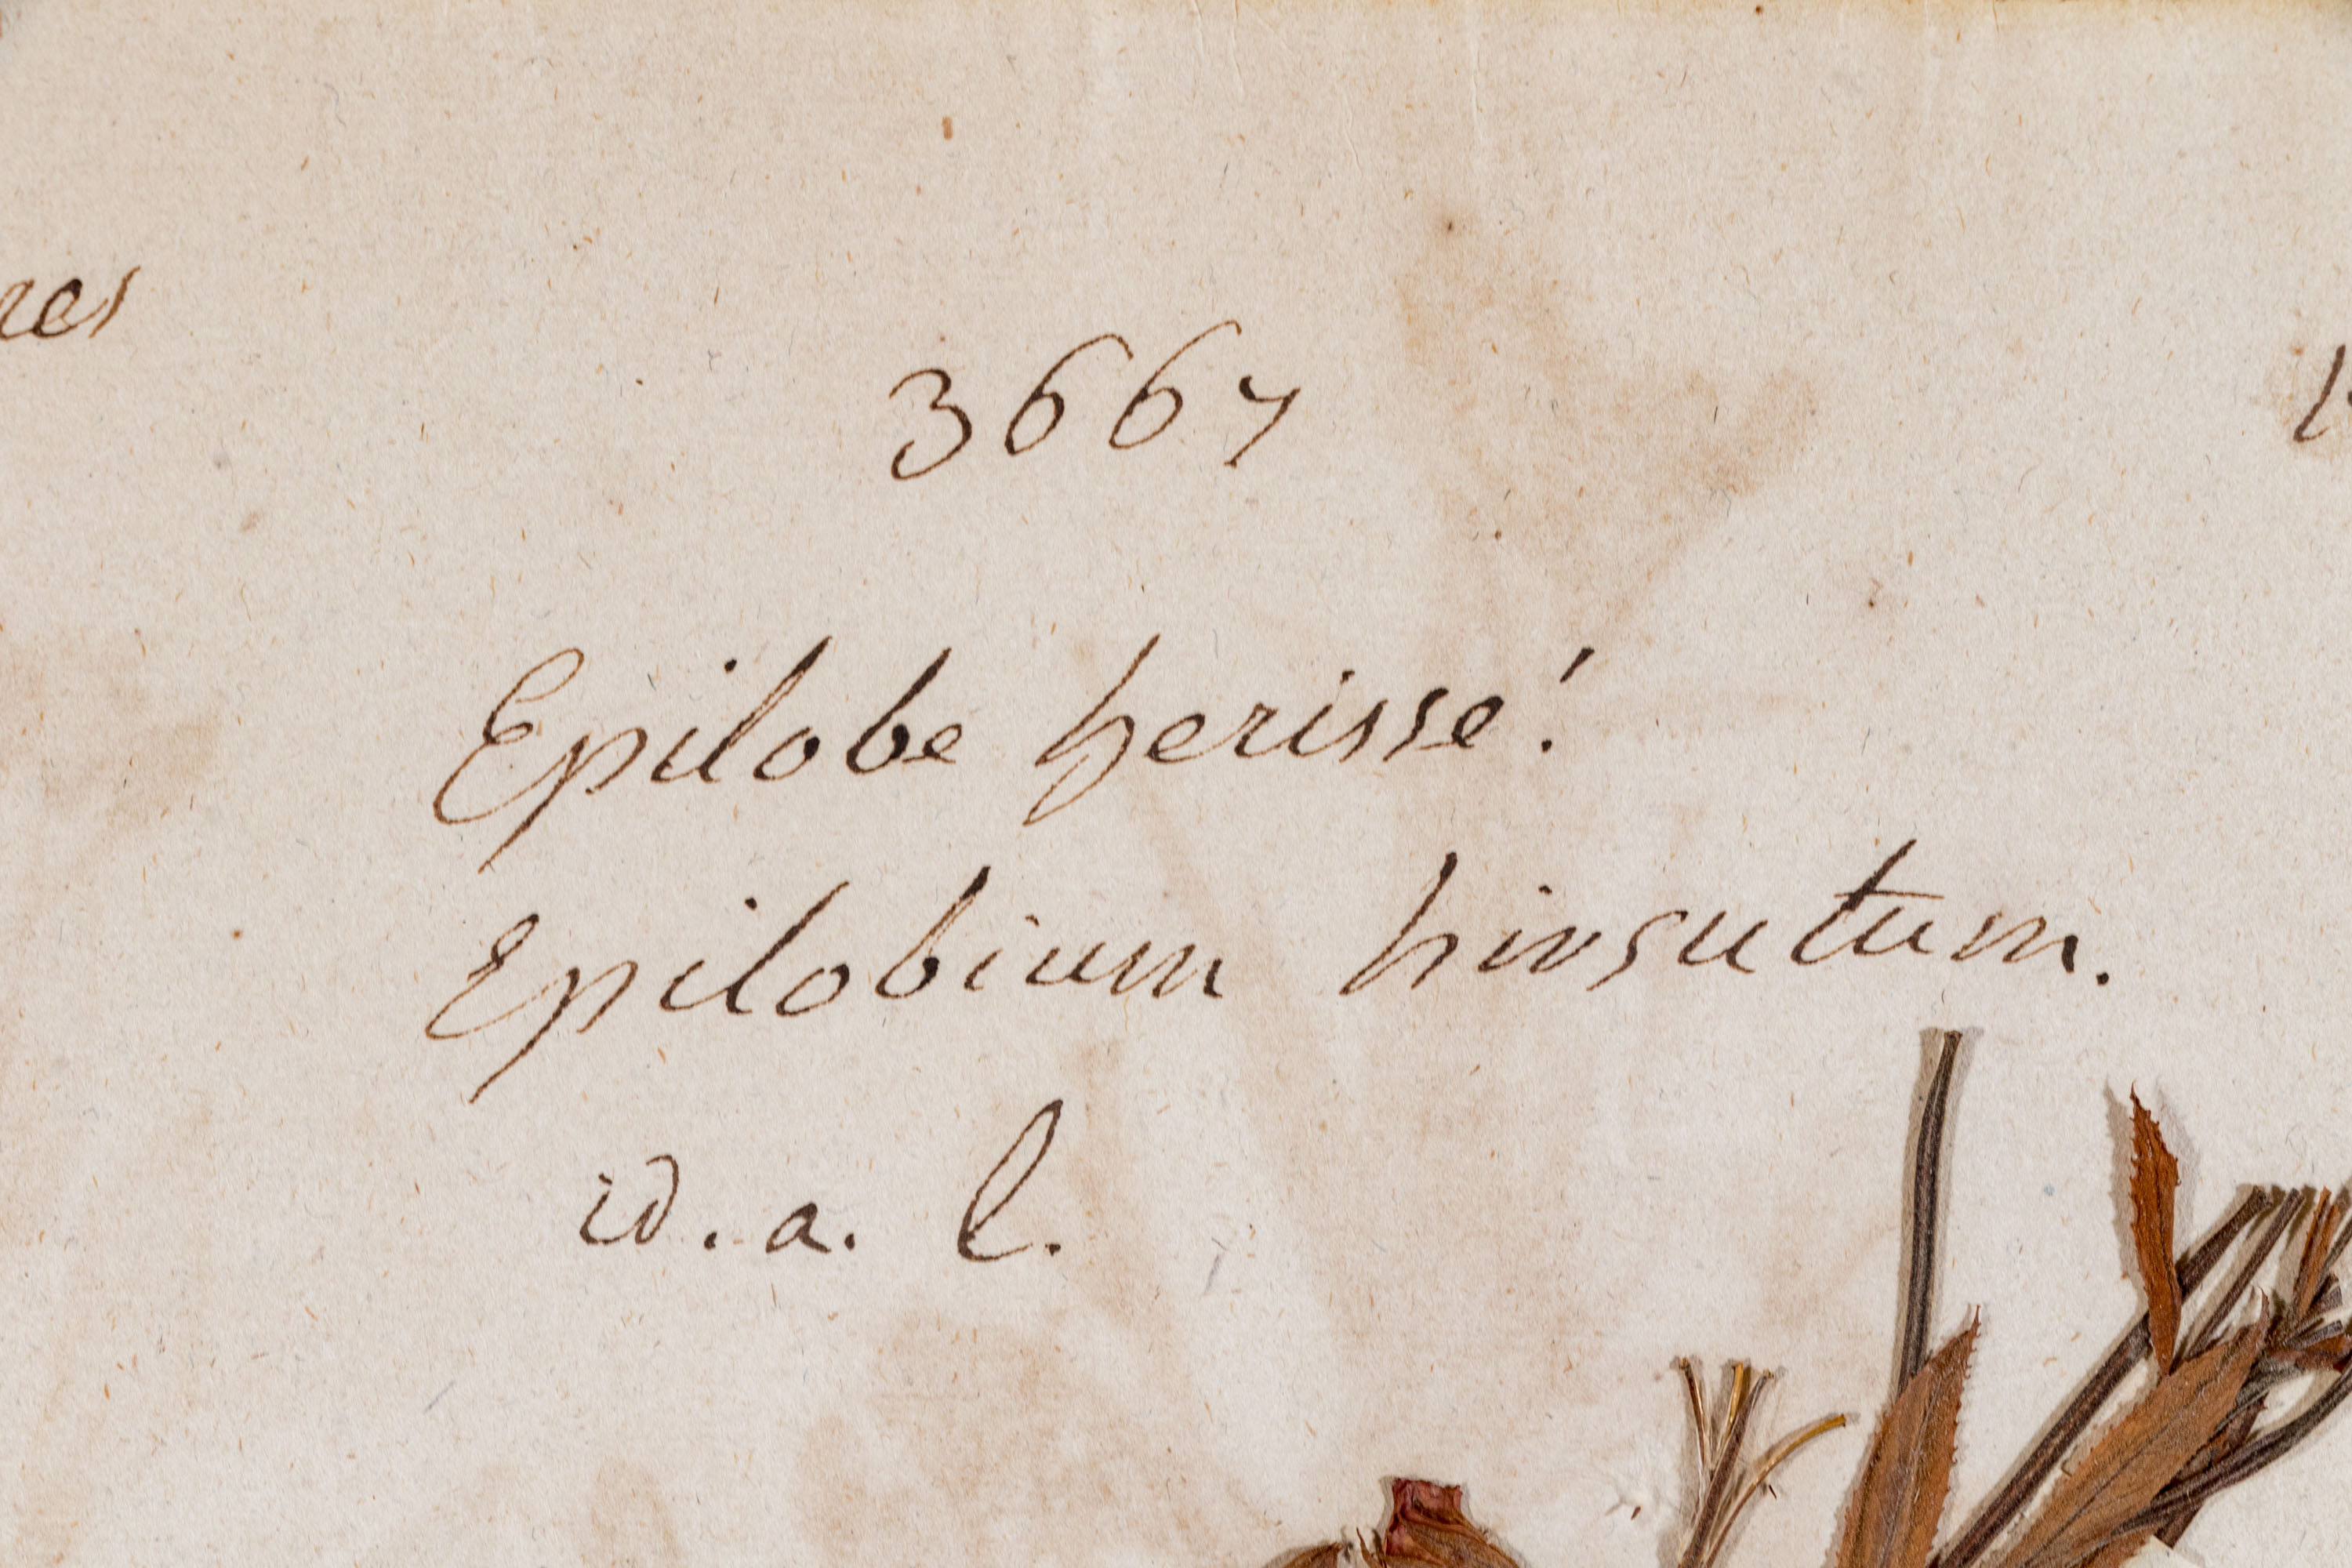 3667
Epilobe herissé.
Epilobium hirsutum.
id. a. l.